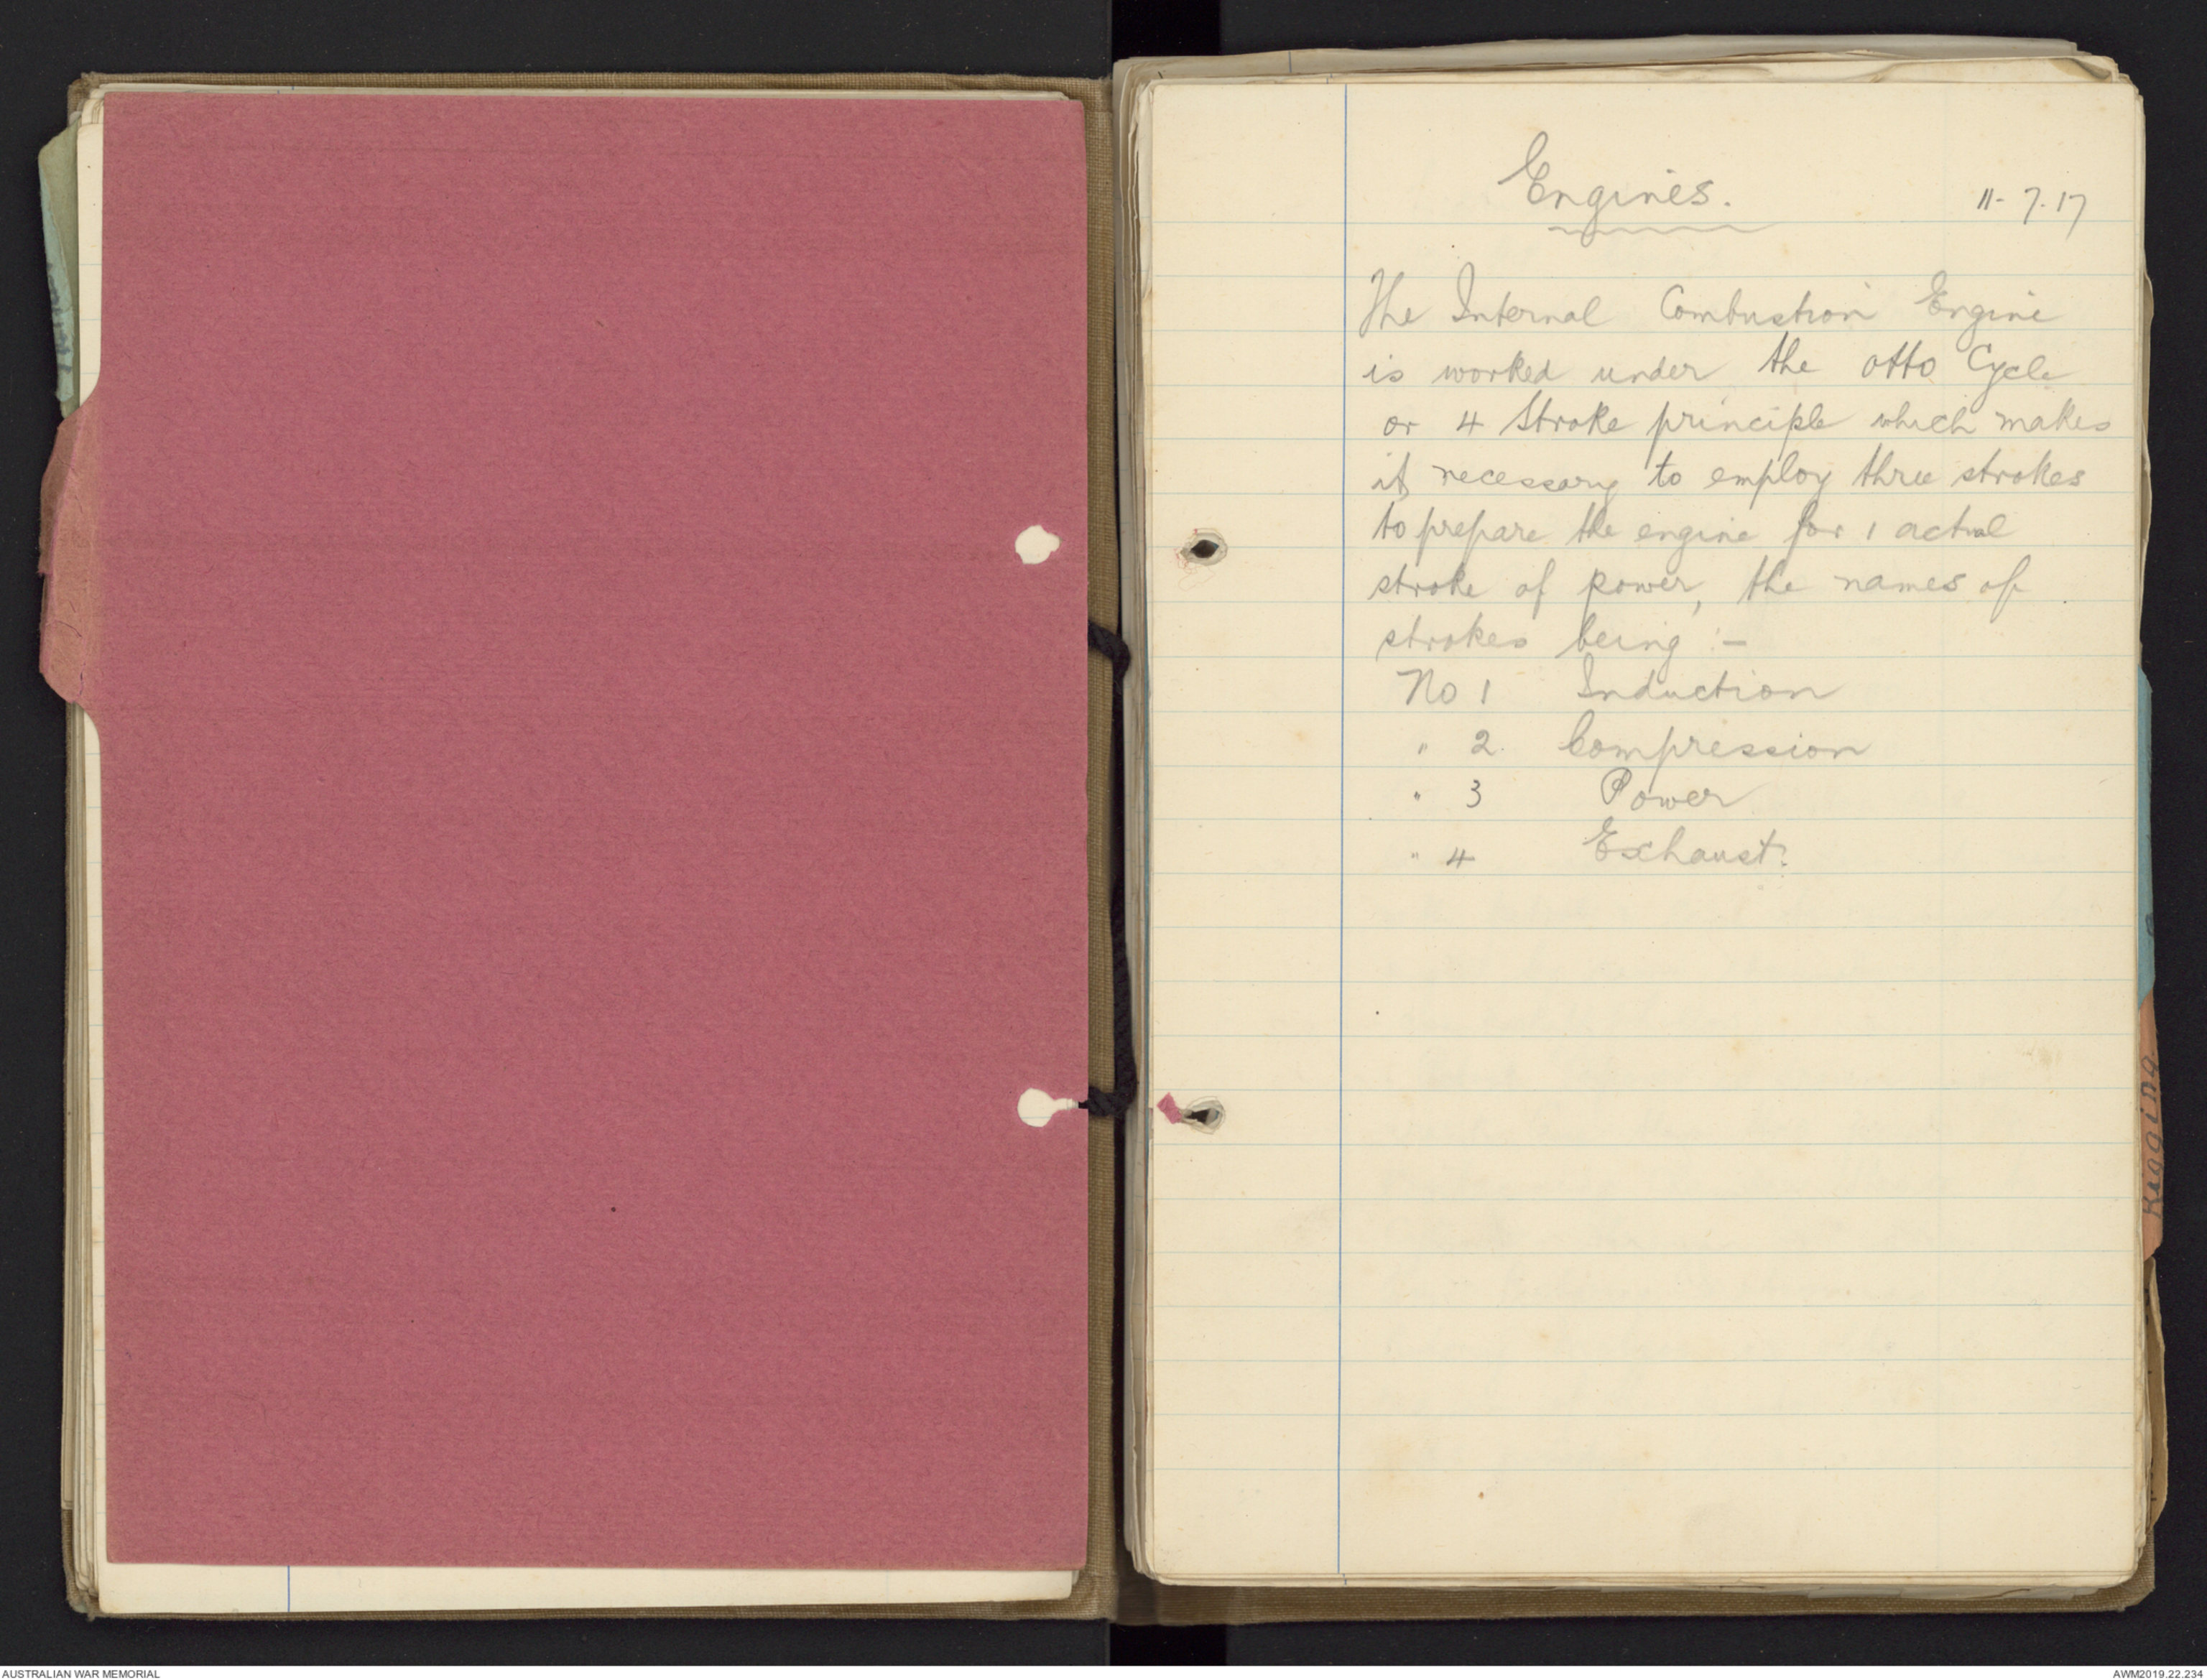 Engines.
11-7.17
The Internal Combustion Engine
is worked under the otto Cycle
or 4 Stroke principle which makes
it necessary to employ three strokes
to prepare the engine for 1 actual
stroke of power, the names of
strokes being :-
No 1 Induction
" 2. Compression
" 3 Power
" 4 Exhaust.
Rigging
AUSTRALIAN WAR MEMORIAL
AWM2019.22.234